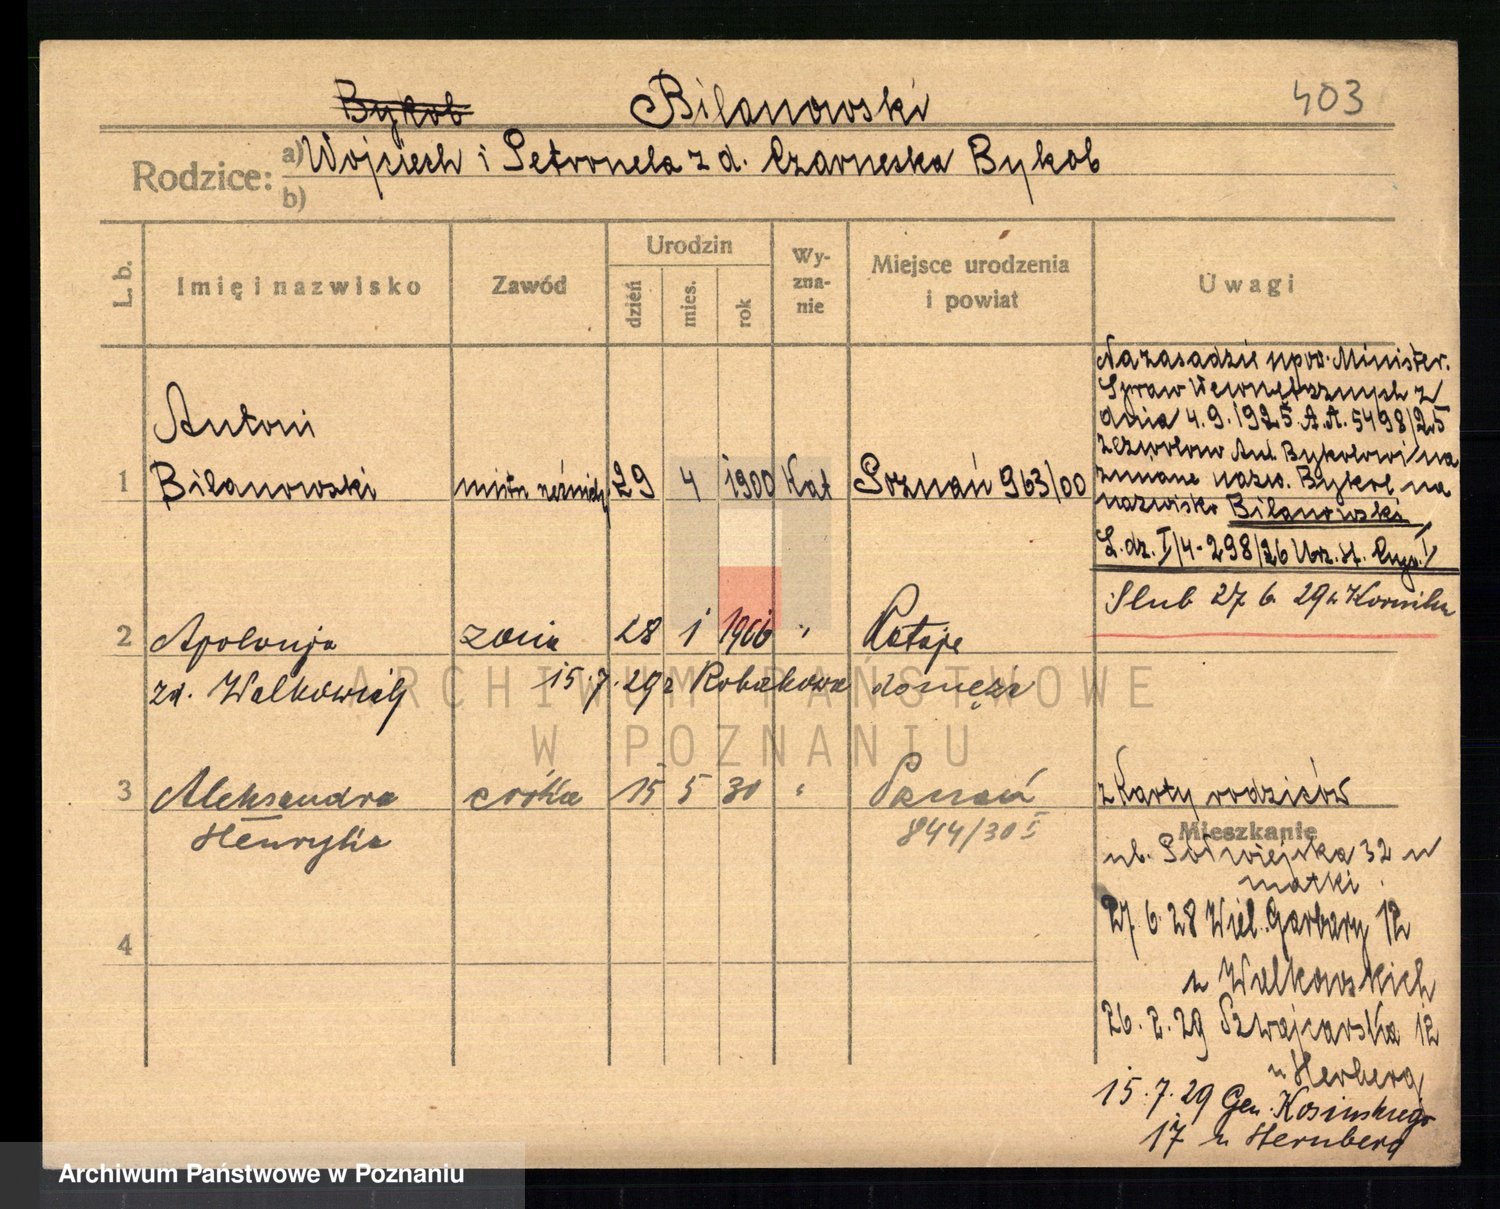 Bykob Bilanowski 403
Rodzice: a) Wojciech i Petronela z d. Czarneska Bykob
b)
L. b. Imię i nazwisko Zawód Urodzin dzień mies. rok Wyznanie Miejsce urodzenia i powiat Uwagi
Na zasadzie upow. Minister.
Spraw Wewnętrznych z
dnia 4.9.1925 A.A. 5498/25
zezwolono Ant. Bykobowi na
zmianę nazw. Bykob na
nazwisko Bilanowski
L. dz. I/4-298/26 Urz. St. Cyw.
1 Antoni
Bilanowski 29 4 1900 Kat Poznań 963/00
Ślub 27 6 29 w Korniku
2 Apolonja żona 28 1 1906 " Rataje
zd. Walkowiak 15.7.29 z Robakowa do męża
3 Aleksandra córka 15 5 30 " Poznań
Henryka 844/30 I
z Karty rodziców
Mieszkanie
ul. Półwiejska 32 u
matki
27.6.28 Wiel. Garbary 12
u Walkowskich
26.2.29 Szwajcarska 12
u Herberg
15.7.29 Gen. Kosinskiego
17 u Hernberg
4
ARCHIWUM PAŃSTWOWE
W POZNANIU
Archiwum Państwowe w Poznaniu